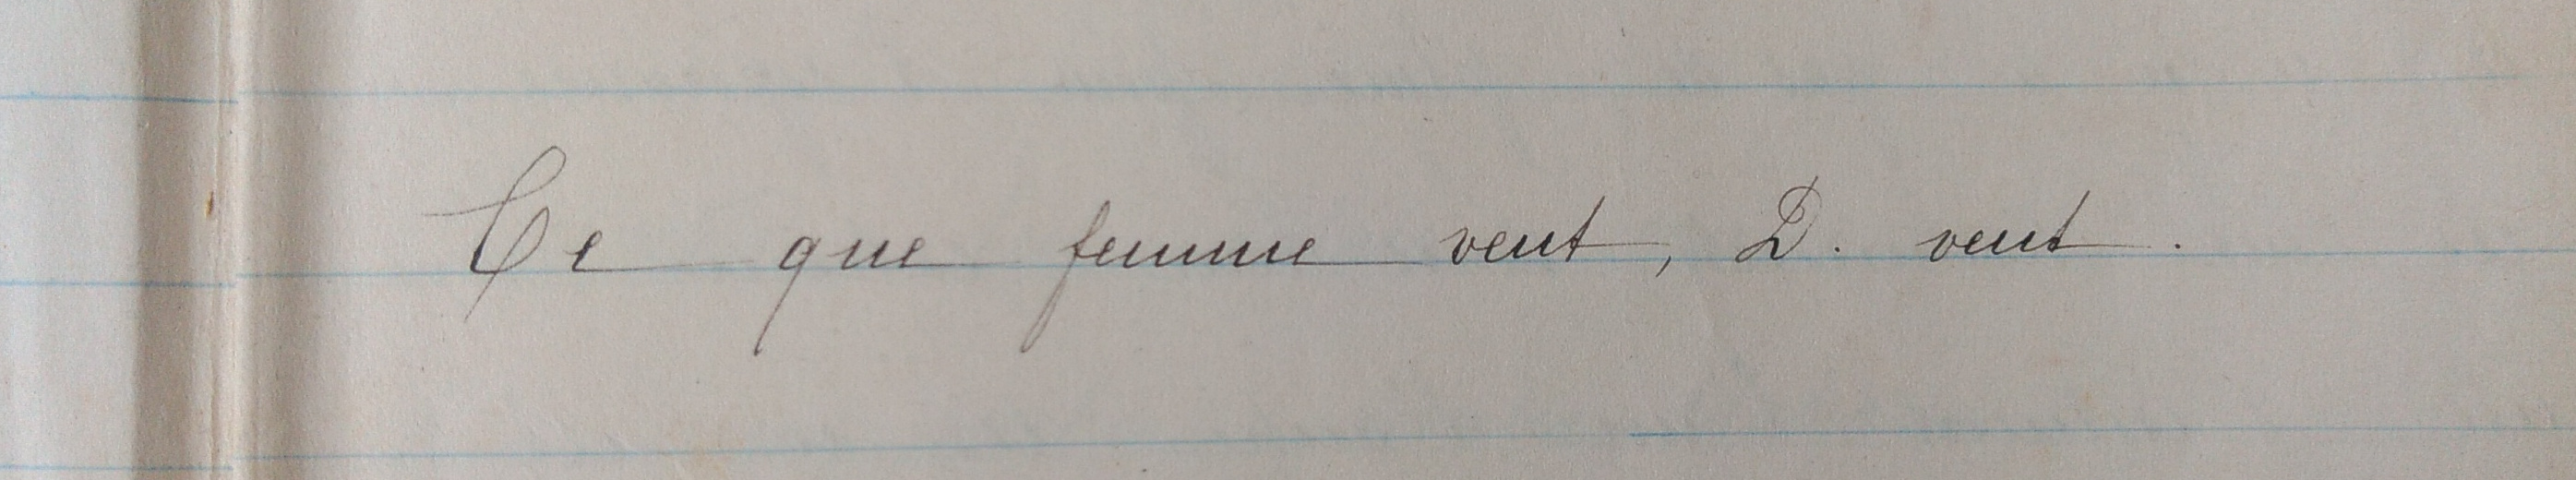 Ce que femme veut, D. veut.